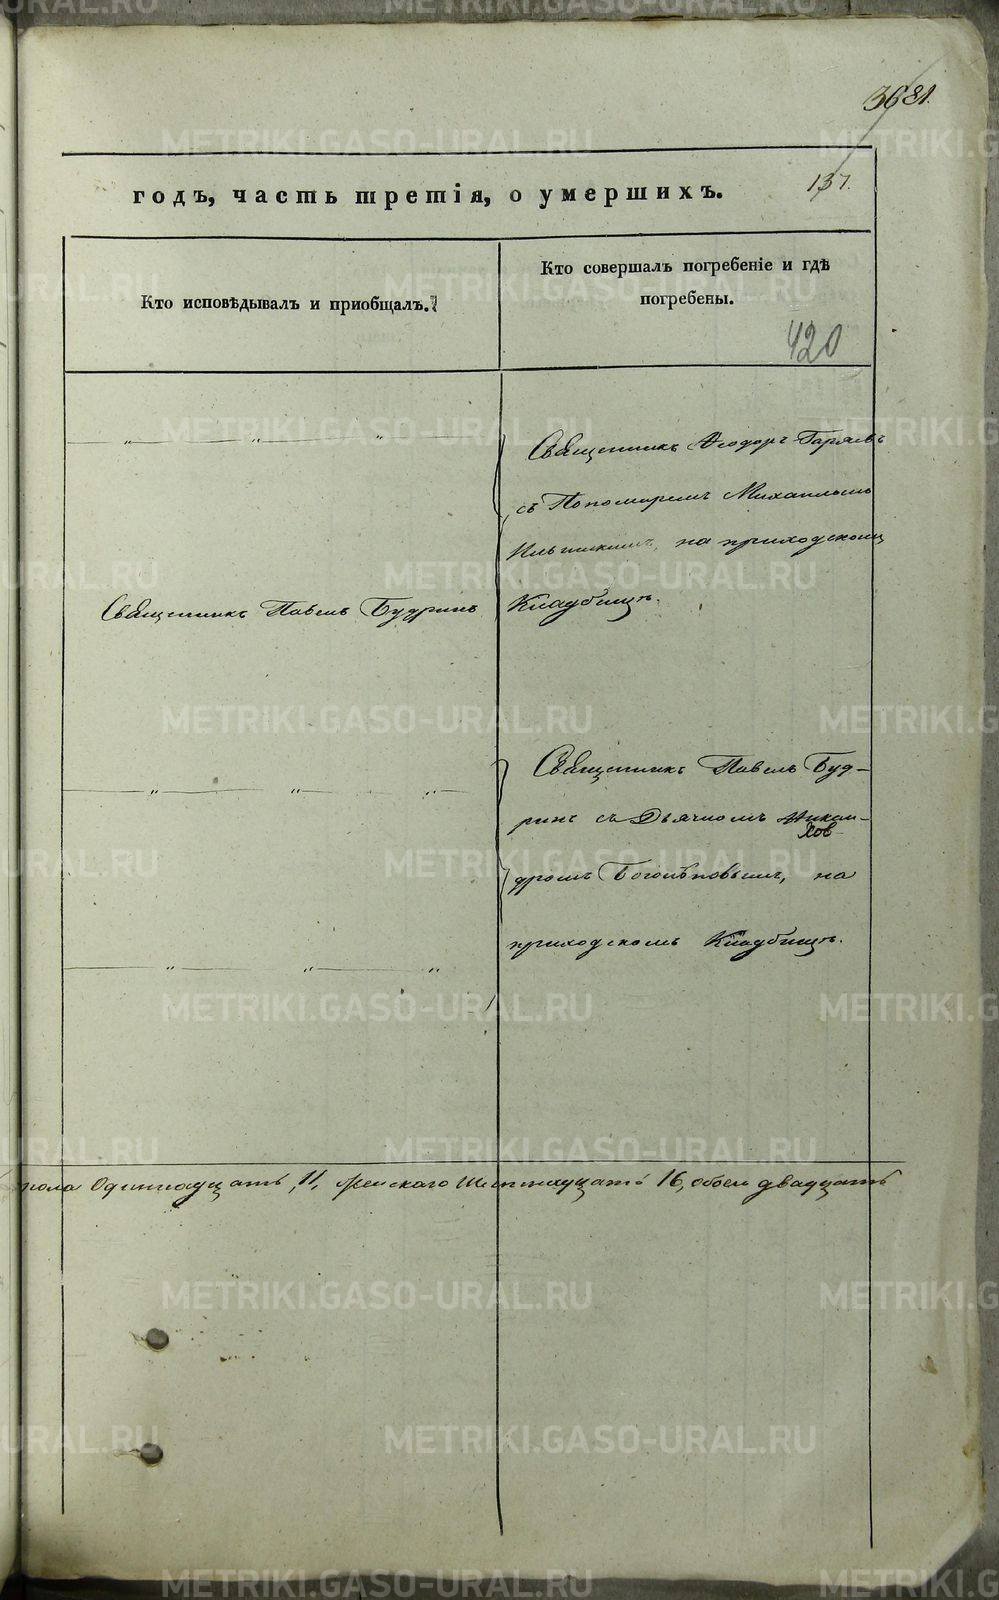 3681.
137.
годъ, часть третія, о умершихъ.
Кто исповѣдывалъ и пріобщалъ.
Кто совершалъ погребеніе и гдѣ
погребены.
420
Священникъ Ѳеодоръ Гаряевъ
съ Пономаремъ Михаиломъ
на приходскомъ
Священникъ Павелъ Будринъ
Кладбищѣ.
Священникъ Павелъ Буд-
ринъ съ Дьячкомъ Никан-
ров
дромъ Боголѣповымъ, на
приходскомъ Кладбищѣ.
пола Одиннадцать, 11, Женскаго Шестнадцать 16, обоего двадцать
METRIKI.GASO-URAL.RU